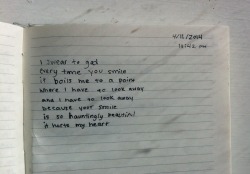 I swear to god
every time you smile
it boils me to a point
where I have to look away
and I have to look away
because your smile
is so hauntingly beautiful
it hurts my heart